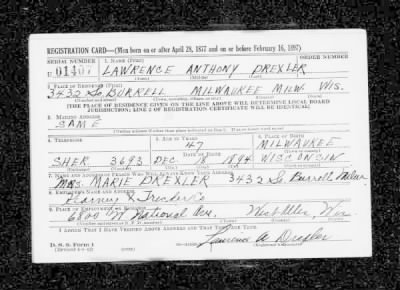 REGISTRATION CARD—(Men born on or after April 28, 1877 and on or before February 16, 1897)
SERIAL NUMBER 1. NAME (Print) ORDER NUMBER
U 01407 LAWRENCE ANTHONY DREXLER
(First) (Middle) (Last)
2. PLACE OF RESIDENCE (Print)
3432 So. BURRELL MILWAUKEE MILW. WIS.
(Number and street) (Town, township, village, or city) (County) (State)
[THE PLACE OF RESIDENCE GIVEN ON THE LINE ABOVE WILL DETERMINE LOCAL BOARD
JURISDICTION; LINE 2 OF REGISTRATION CERTIFICATE WILL BE IDENTICAL]
3. MAILING ADDRESS
SAME
[Mailing address if other than place indicated on line 2. If same insert word same]
4. TELEPHONE 5. AGE IN YEARS 6. PLACE OF BIRTH
47 MILWAUKEE
DATE OF BIRTH (Town or county)
SHER 3693 DEC 18 1894 WISCONSIN
(Exchange) (Number) (Mo.) (Day) (Yr.) (State or country)
7. NAME AND ADDRESS OF PERSON WHO WILL ALWAYS KNOW YOUR ADDRESS
MRS. MARIE DREXLER 3432 So Burrell Milw
8. EMPLOYER'S NAME AND ADDRESS
9. PLACE OF EMPLOYMENT OR BUSINESS
6800 W. National Ave. West Allis, Wis
(Number and street or R. F. D. number) (Town) (County) (State)
I AFFIRM THAT I HAVE VERIFIED ABOVE ANSWERS AND THAT THEY ARE TRUE.
D. S. S. Form 1
Lawrence A Drexler